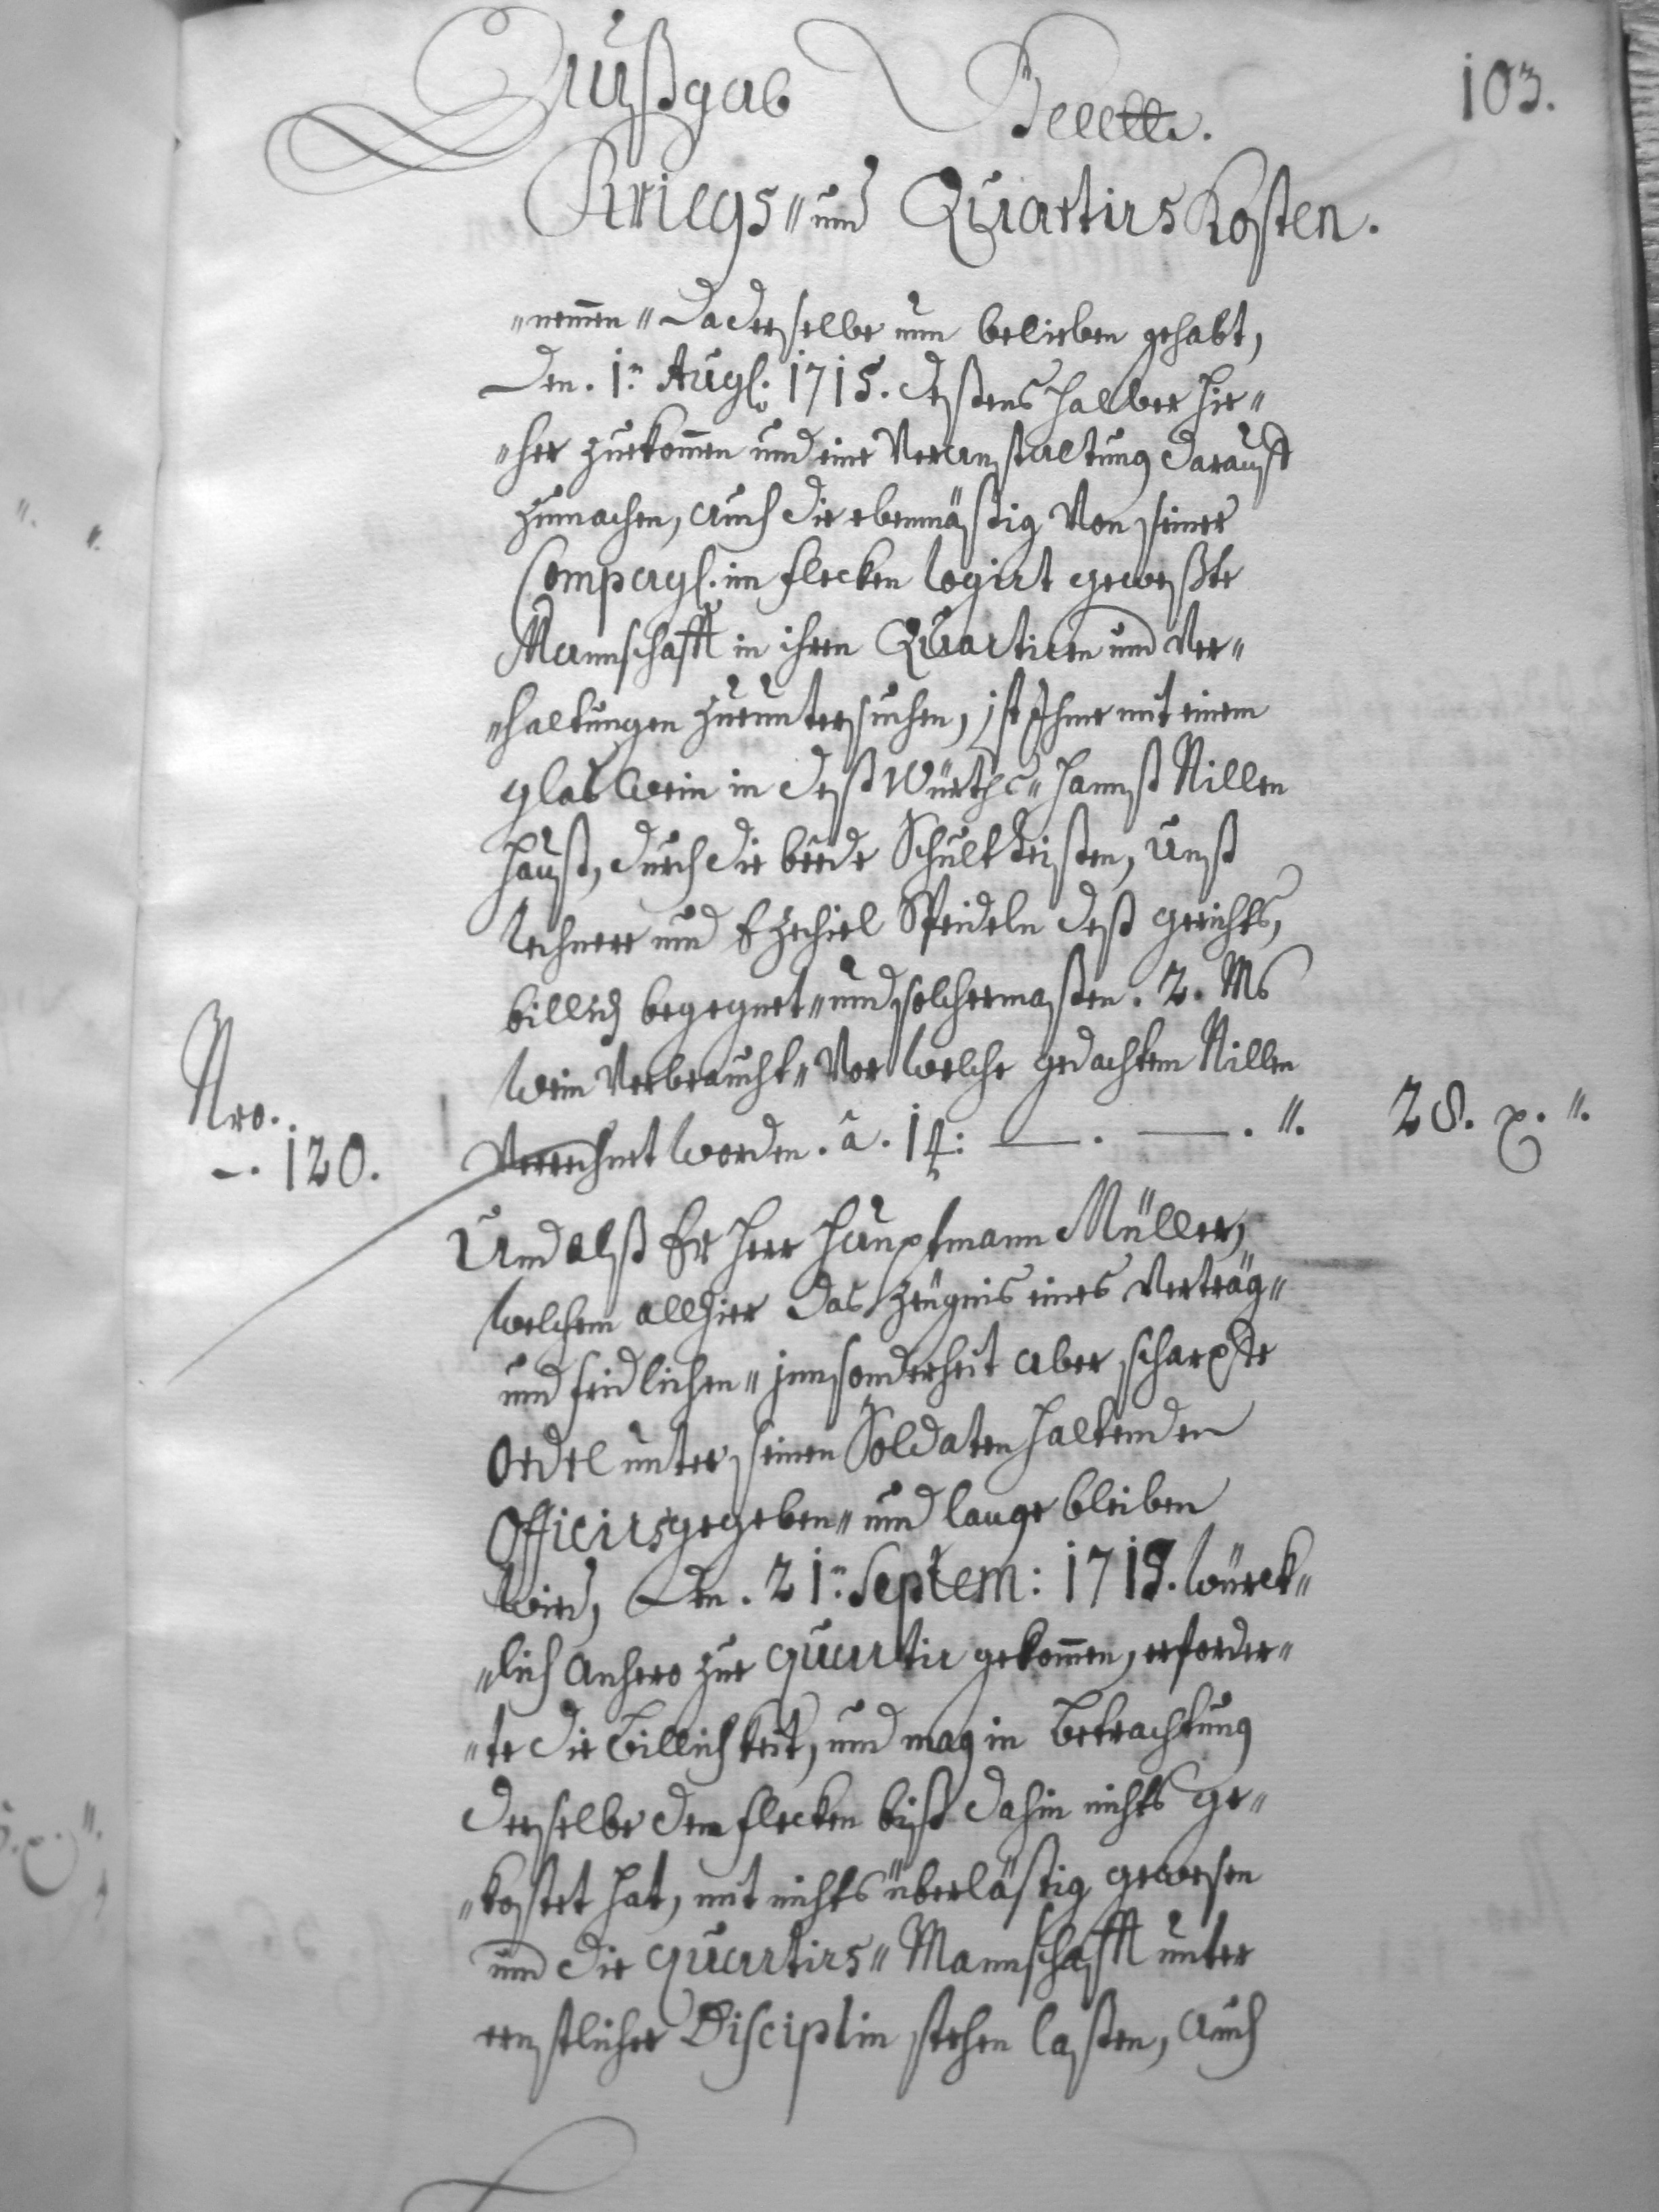 103.
Außgab Geltt.
Kriegs" und Quartirs Kosten.
"nemmen" Da derselbe nun belieben gehabt,
Den. 1.n Aug. 1715. deßens halber hie"
"her zuekommen und eine Veranstaltung darauff
zumachen, auch die ebenmäßig von seiner
Compag. im flecken logirt geweßte
Mannschafft in ihren Quartiren und Ver"
"haltungen zueuntersuchen, ist Ihme mit einem
glas Wein in deß Würths" Hannß Nillen
Hauß, durch die beede Schultheißen,
und Ezechiel Speideln deß gerichts,
billich begegnet" und solchermaßen. 2. Ms
Wein verbraucht" Vor welche gedachtem Nillen
Nro.
-. 120.
Verrechnet worden. â. 1 f: —. —. ". 28. x. ".
Und alß Er Herr Hauptmann Müller,
welchem allhier das Zeügnis eines Verträg"
und fridlichen" innsonderheit aber scharpffe
Ordel unter seinen Soldaten haltenden
Officirs gegeben" und lange bleiben
wird, Den. 21.n Septem: 1715. würck"
"lich anhero zue quartir gekommen, erforder"
"te die Billichkeit, und mag in Betrachtung
derselbe dem flecken biß dahin nichts ge"
"kostet hat, mit nichts überläßtig gewesen
und die quartirs" Mannschafft unter
ernstlicher Disciplin stehen laßen, auch